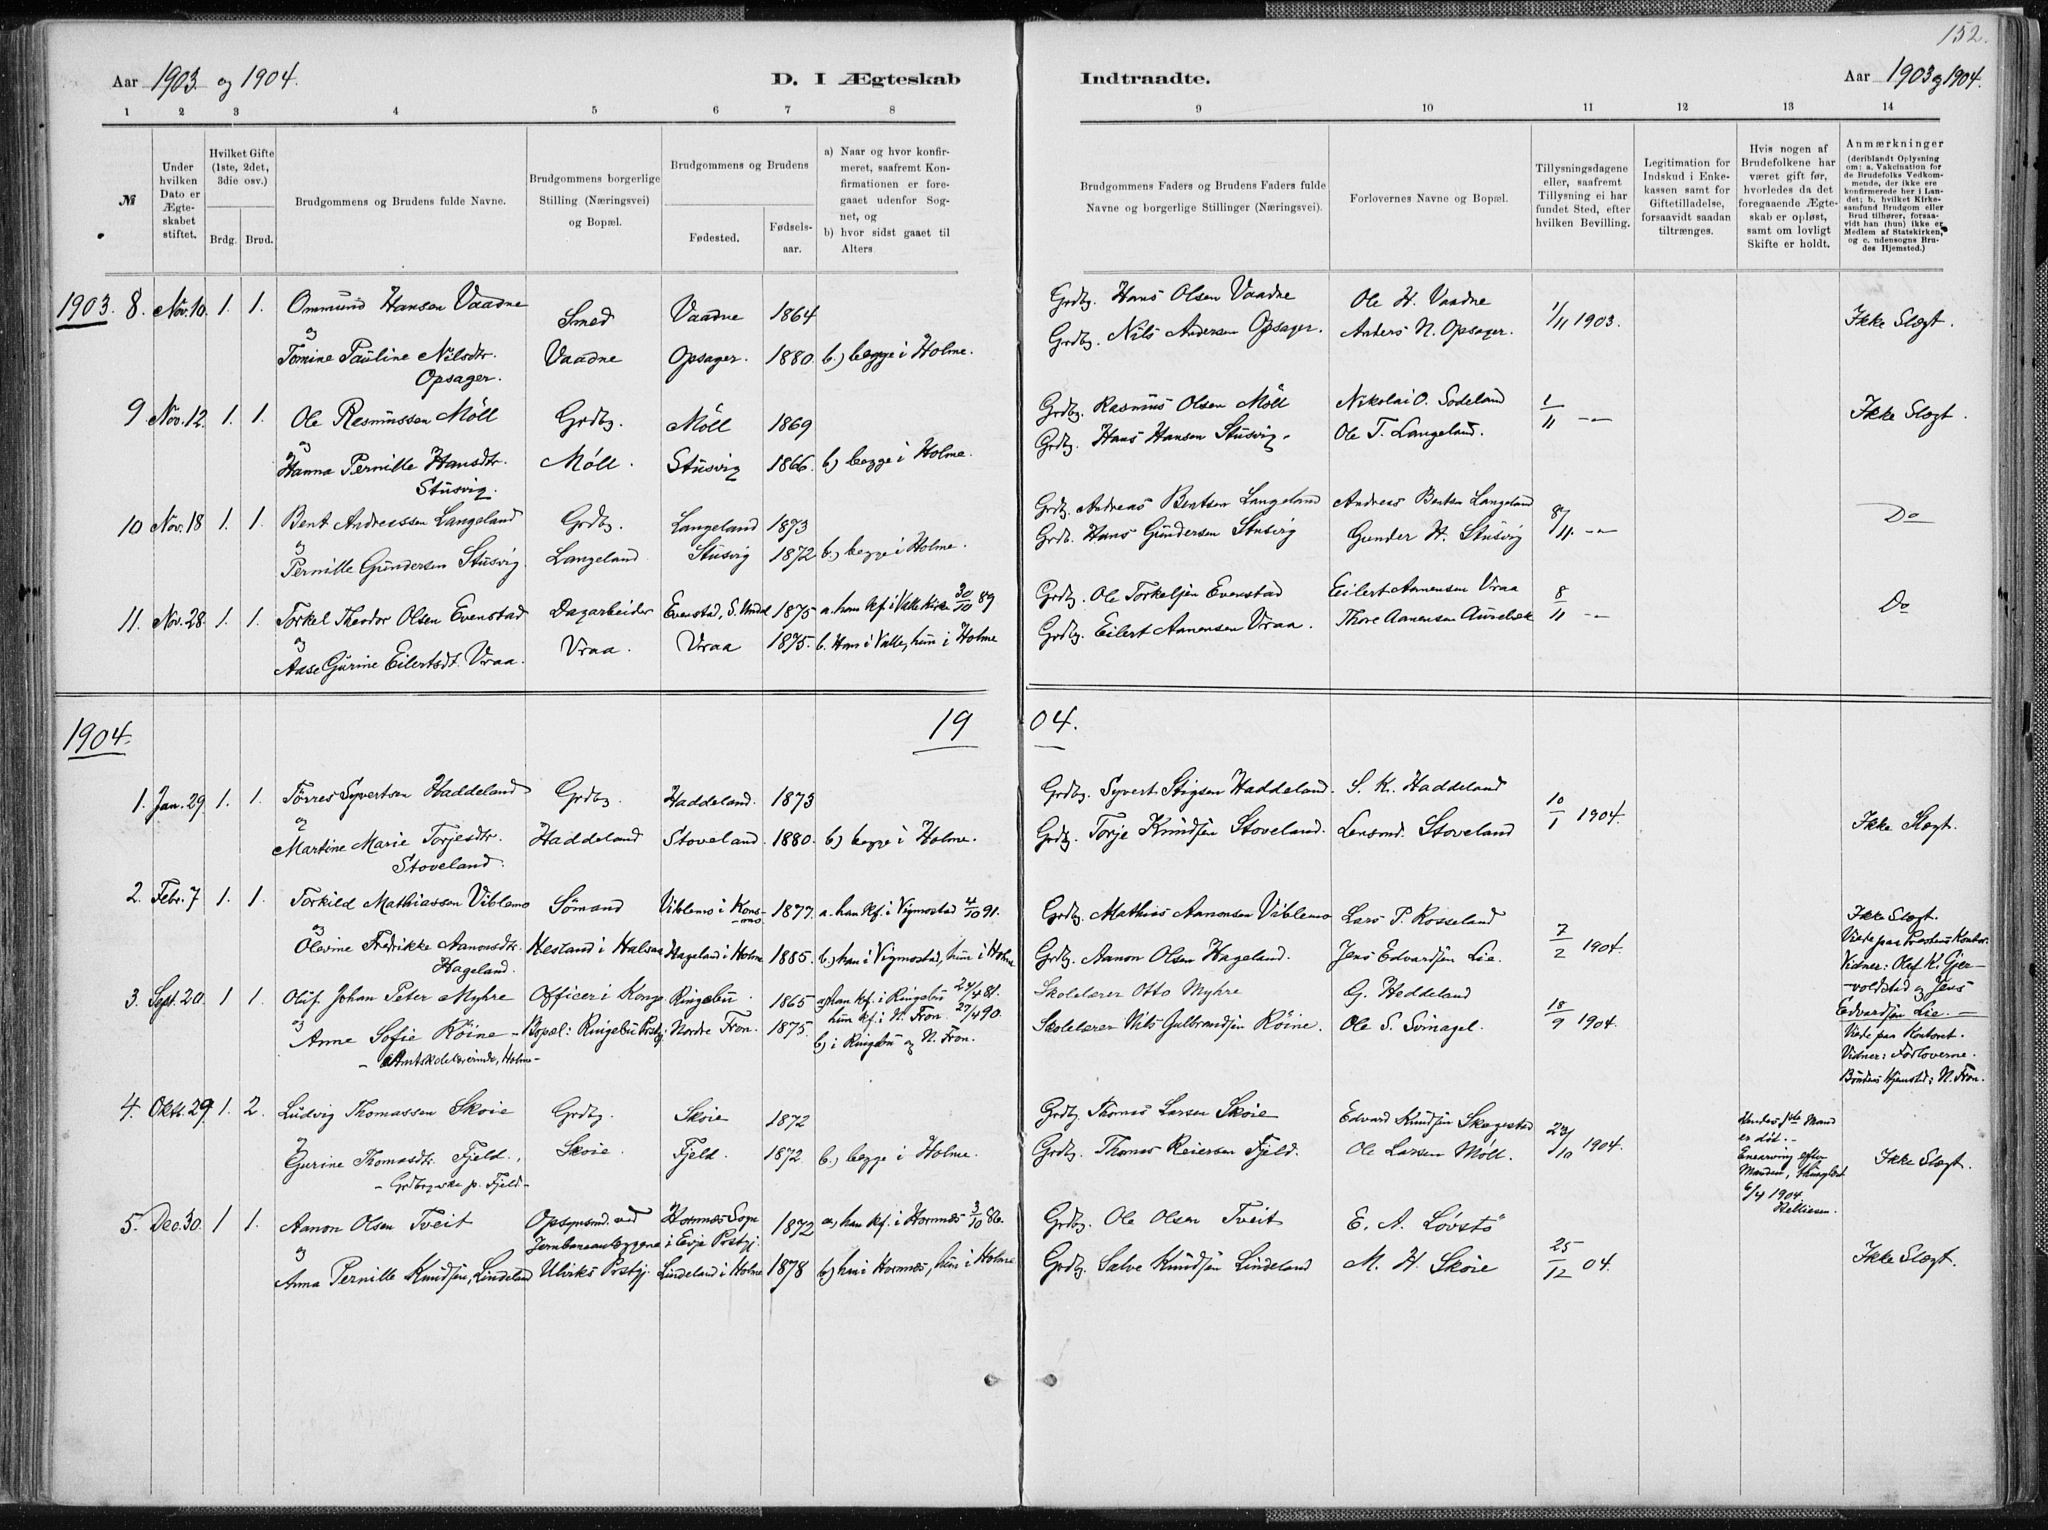 152.
Aar 1903 og 1904. D. I Ægteskab Indtraadte. Aar 1903 og 1904.
1 2 3 4 5 6 7 8 9 10 11 12 13 14
№
Under hvilken Dato er Ægteskabet stiftet.
Hvilket Gifte (1ste, 2det, 3die osv.)
Brdg. Brud.
Brudgommens og Brudens fulde Navne.
Brudgommens borgerlige Stilling (Næringsvei) og Bopæl.
Brudgommens og Brudens
Fødested. Fødsels-aar.
a) Naar og hvor konfirmeret, saafremt Konfirmationen er foregaaet udenfor Sognet, og
b) hvor sidst gaaet til Alters
Brudgommens Faders og Brudens Faders fulde Navne og borgerlige Stillinger (Næringsvei).
Forlovernes Navne og Bopæl.
Tillysningsdagene eller, saafremt Tillysning ei har fundet Sted, efter hvilken Bevilling.
Legitimation for Indskud i Enkekassen samt for Giftetilladelse, forsaavidt saadan tiltrænges.
Hvis nogen af Brudefolkene har været gift før, hvorledes da det foregaaende Ægteskab er opløst, samt om lovligt Skifte er holdt.
Anmærkninger
(deriblandt Oplysning om: a. Vakcination for de Brudefolks Vedkommende, der ikke ere konfirmerede her i Landet; b. hvilket Kirkesamfund Brudgom eller Brud tilhører, forsaavidt han (hun) ikke er Medlem af Statskirken, og c. udensogns Brudes Hjemsted.)
1903. 8. Nov. 10. 1. 1. Ommund Hansen Vaadne Smed Vaadne 1864 Grdbg. Hans Olsen Vaadne Ole H. Vaadne 1/11 1903. Ikke Slægt.
og Tomine Pauline Nilsdtr. Opsager. Vaadne Opsager. 1880. b.) begge i Holme. Grdbg. Nils Andersen Opsager. Anders N. Opsager.
9 Nov. 12. 1. 1. Ole Rasmussen Möll Grdbg. Möll 1869 Grdbg. Rasmus Olsen Möll Nikolai O. Sodeland 1/11 -"- Ikke Slægt.
og Hanna Pernille Hansdtr. Stusvig. Möll. Stusvig 1866. b) begge i Holme. Grdbg. Hans Hansen Stusvig. Ole T. Langeland.
10 Nov. 18 1. 1. Bent Andreassen Langeland Grdbg. Langeland 1873 Grdbg. Andreas Bentsen Langeland Andreas Bentsen Langeland 8/11. -"- Do
og Pernille Gundersen Stusvig. Langeland Stusvig 1872 b.) begge i Holme. Grdb. Hans Gundersen Stusvig Gunder H. Stusvig
11. Nov. 28. 1. 1. Torkel Theodor Olsen Evenstad Dagarbeider Evenstad, S. Undal 1875 a. han kf. i Valle Kirke 30/10 89 Grdbg. Ole Torkelsen Evenstad Eilert Aanensen Vraa 8/11 -"- Do
og Aase Gurine Eilertsdt. Vraa. Vraa. Vraa 1875. b. Han i Valle, hun i Holme Grdbg. Eilert Aanensen Vraa. Thore Aanensen
1904. 1904.
1. Jan. 29 1. 1. Törres Syvertsen Haddeland Grdbg. Haddeland. 1873 Grdbg. Syvert Stigsen Haddeland. S. K. Haddeland 10/1 1904. Ikke Slægt.
og Martine Marie Torjesdtr. Stoveland. Haddeland Stoveland. 1880. b) begge i Holme. Grdbg. Torje Knudsen Stoveland. Lensmd. Stoveland
2. Febr. 7 1. 1. Torkild Mathiassen Viblemo Sömand Viblemo i Konsmo 1877. a. han kf. i Vigmostad 4/10 91. Grdbg. Mathias Aanonsen Viblemo Lars P. Rosseland 7/2 1904. Ikke Slægt.
og Olevine Fredrikke Aanonsdtr. Hageland. Hesland i Halsaa Hageland i Holme 1885. b.) han i Vigmostad, hun i Holme Grdbg. Aanon Olsen Hageland. Jens Edvardsen Lie. Viede paa Prestens Kontor. Vidner: Olaf K. Gjervoldstad og Jens Edvardsen Lie. -
3. Sept. 20 1 1 Oluf Johan Peter Myhre Officer i Kongs- Ringebu. 1865 a) han kf. i Ringebu 24/4 81. Skolelærer Otto Myhre G. Heddeland 18/9 1904. Viede paa Kontoret.
og Anne Sofie Röine - Bopæl: Ringebu Prstgj. Nordre Fron. 1875. hun kf. i N. Fron. 27/4 90. Skolelærer Nils Gulbrandsen Röine. Ole S. Svinagel. Vidner: Forloverne.
- Amtskolelærerinde, Holme - b) i Ringebu og N. Fron. Brudens Hjemsted: N. Fron.
4. Oktr. 29 1. 2. Ludvig Thomassen Skoie Grdbg. Skoie 1872 Grdbg. Thomas Larsen Skoie Edvard Knudsen Skagestad 23/10 1904. Hendes 1ste Mand er död. -
og Gurine Thomasdtr. Fjeld. Skoie. Fjeld. 1872. b.) begge i Holme. Grdbg. Thomas Reiersen Fjeld. Ole Larsen Möll. Enearving efter Manden, thinglæst 6/4 1904. Ikke Slægt.
- Grdbrgske p. Fjeld -
5. Dec. 30. 1 1. Aanon Olsen Tveit Opsynsmd. ved Jernbaneanlæggene Hornnes Sogn i Evje Prstgj. 1872 a) han kf. i Hornnes 3/10 86. Grdbg. Ole Olsen Tveit E. A. Lövstö 25/12 04. Ikke Slægt.
og Anna Pernille Knudsen, Lindeland Ulviks Prstgj. Lindeland i Holme 1878 b.) han i Hornnes, hun i Holme Grdbg. Salve Knudsen Lindeland M. H. Skoie